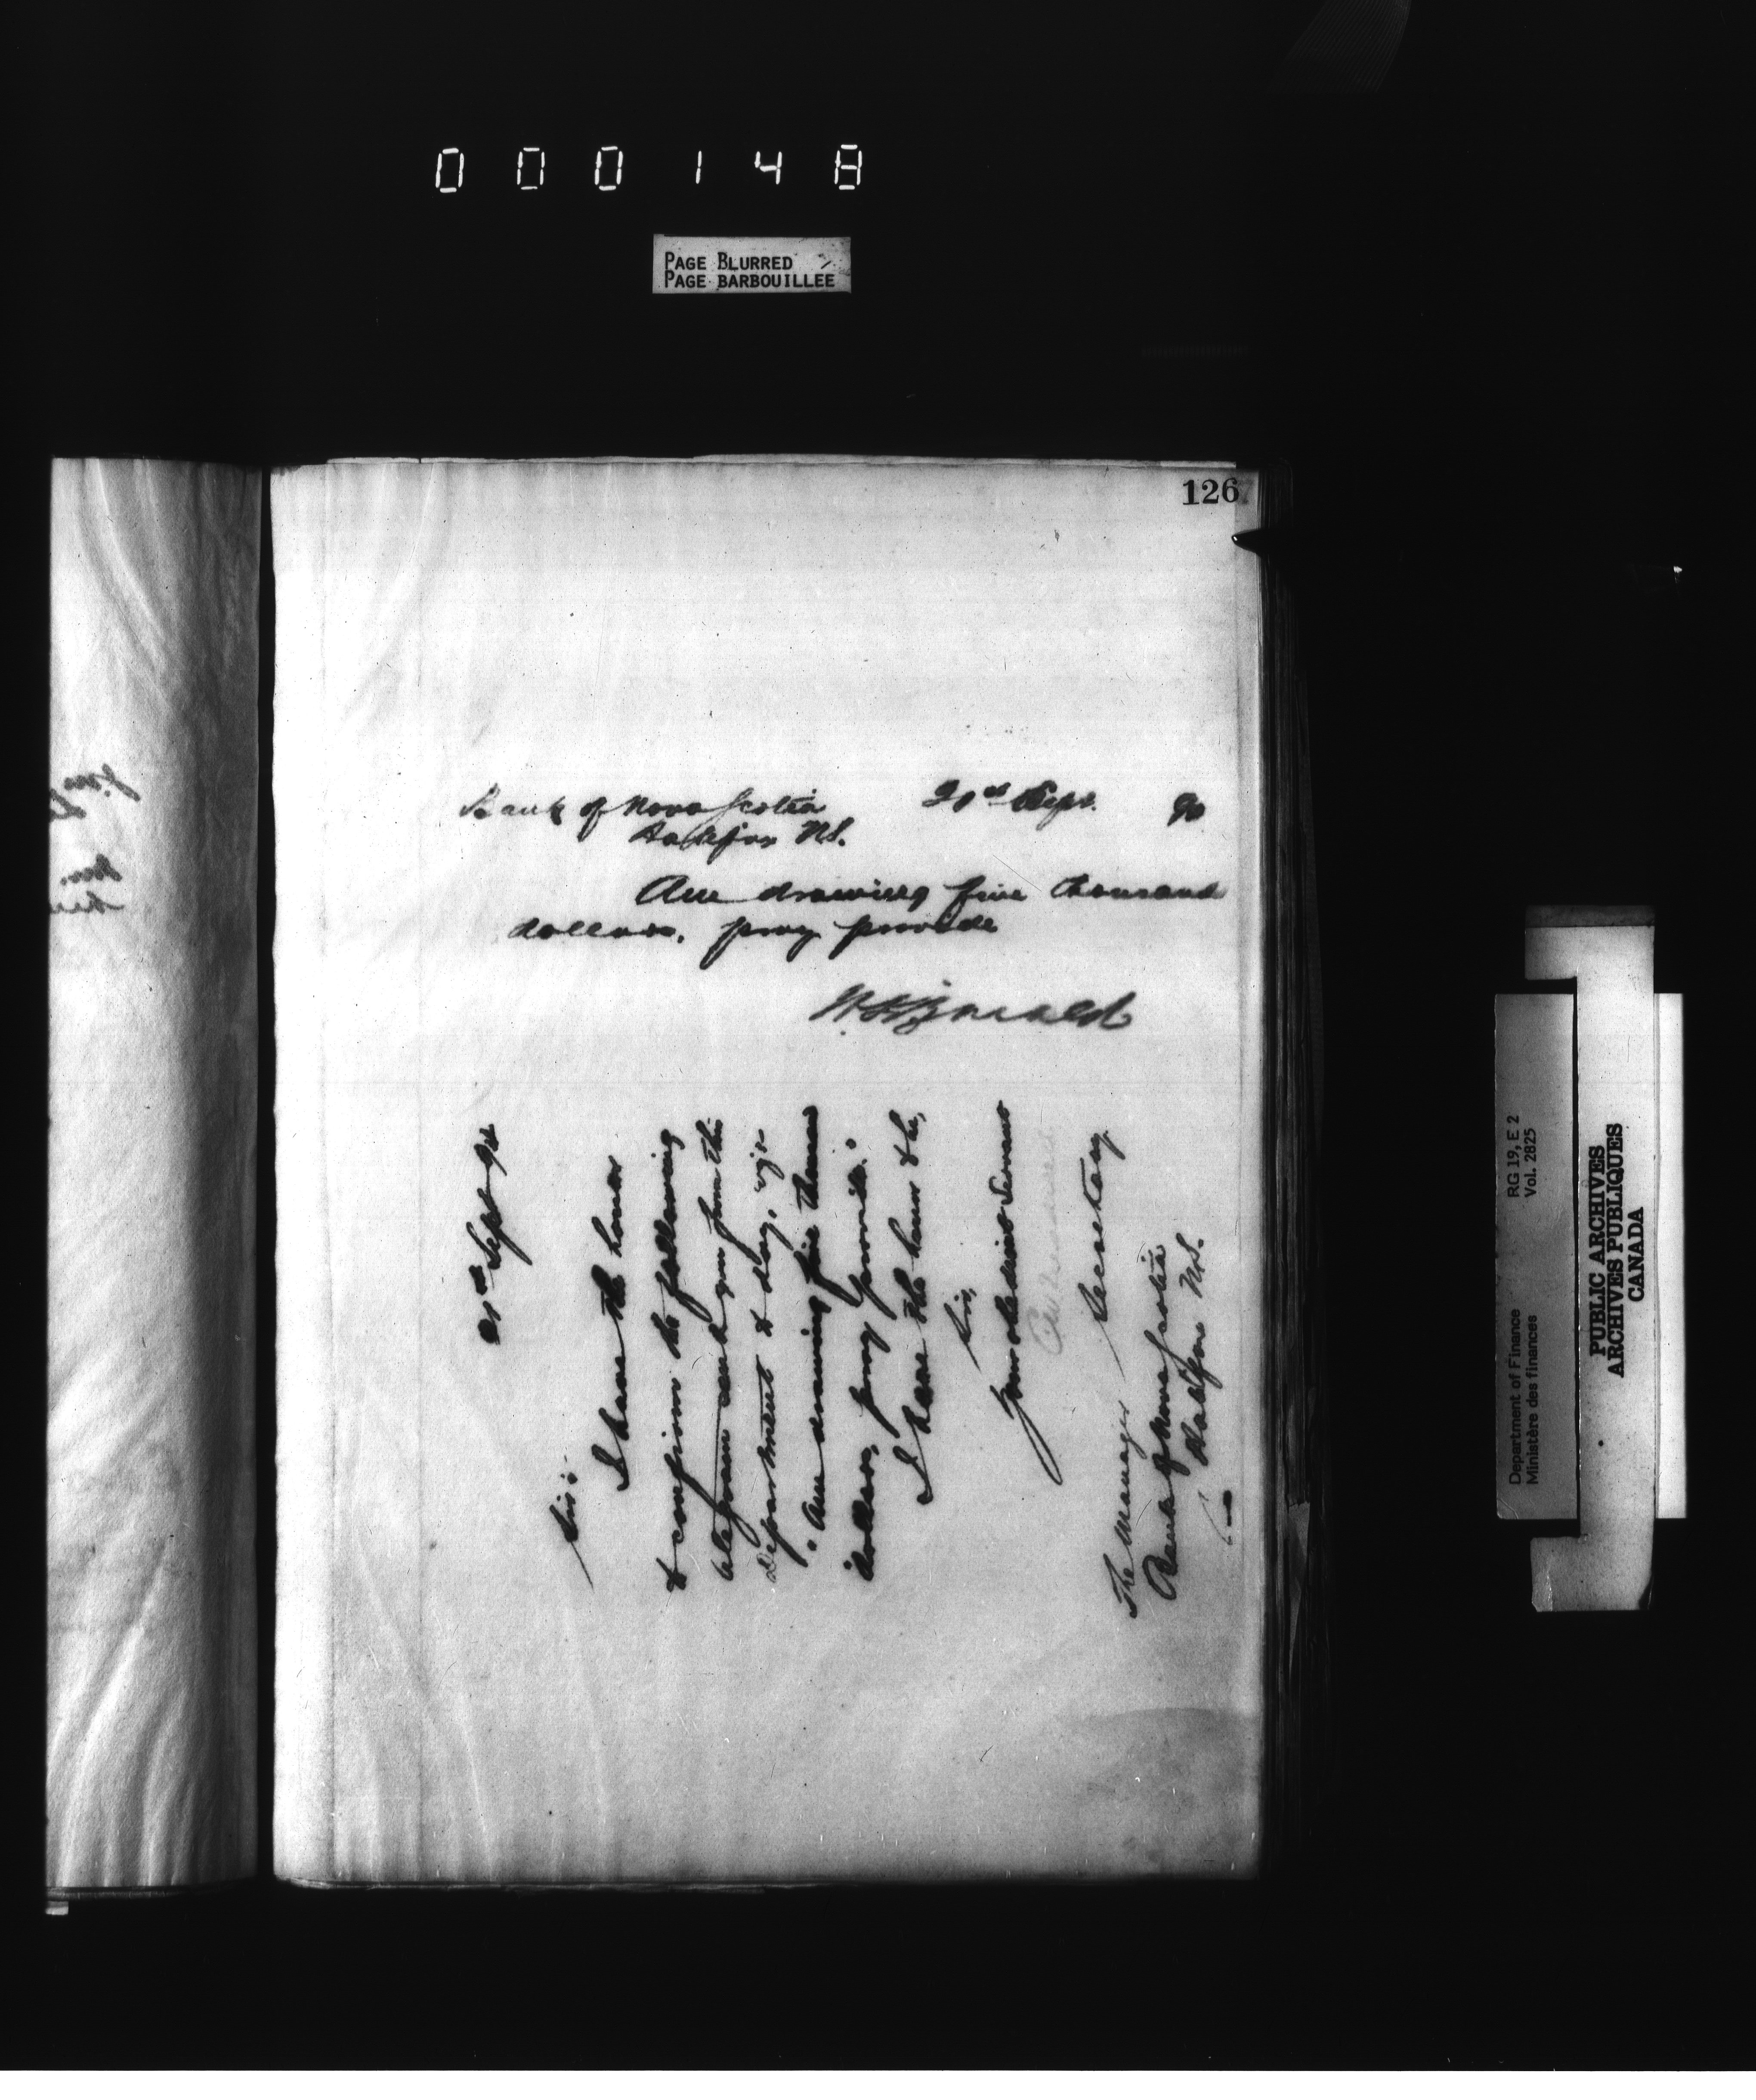 0 0 0 1 4 8
PAGE BLURRED
PAGE BARBOUILLEE
126
Bank of Nova Scotia 21st Sept. 90
Halifax N.S.
Am drawing five thousand
dollars, pray provide
21st Sept 90
Sir:
I have the honor
to confirm the following
telegram sent you from this
Department to day, viz:
"Am drawing five thousand
dollars, pray provide."
I have the honor to be,
Sir,
Your obedient Servant
Secretary
The Manager
Bank of Nova Scotia
Halifax N.S.
Department of Finance RG 19, E 2
Ministère des finances Vol. 2825
PUBLIC ARCHIVES
ARCHIVES PUBLIQUES
CANADA